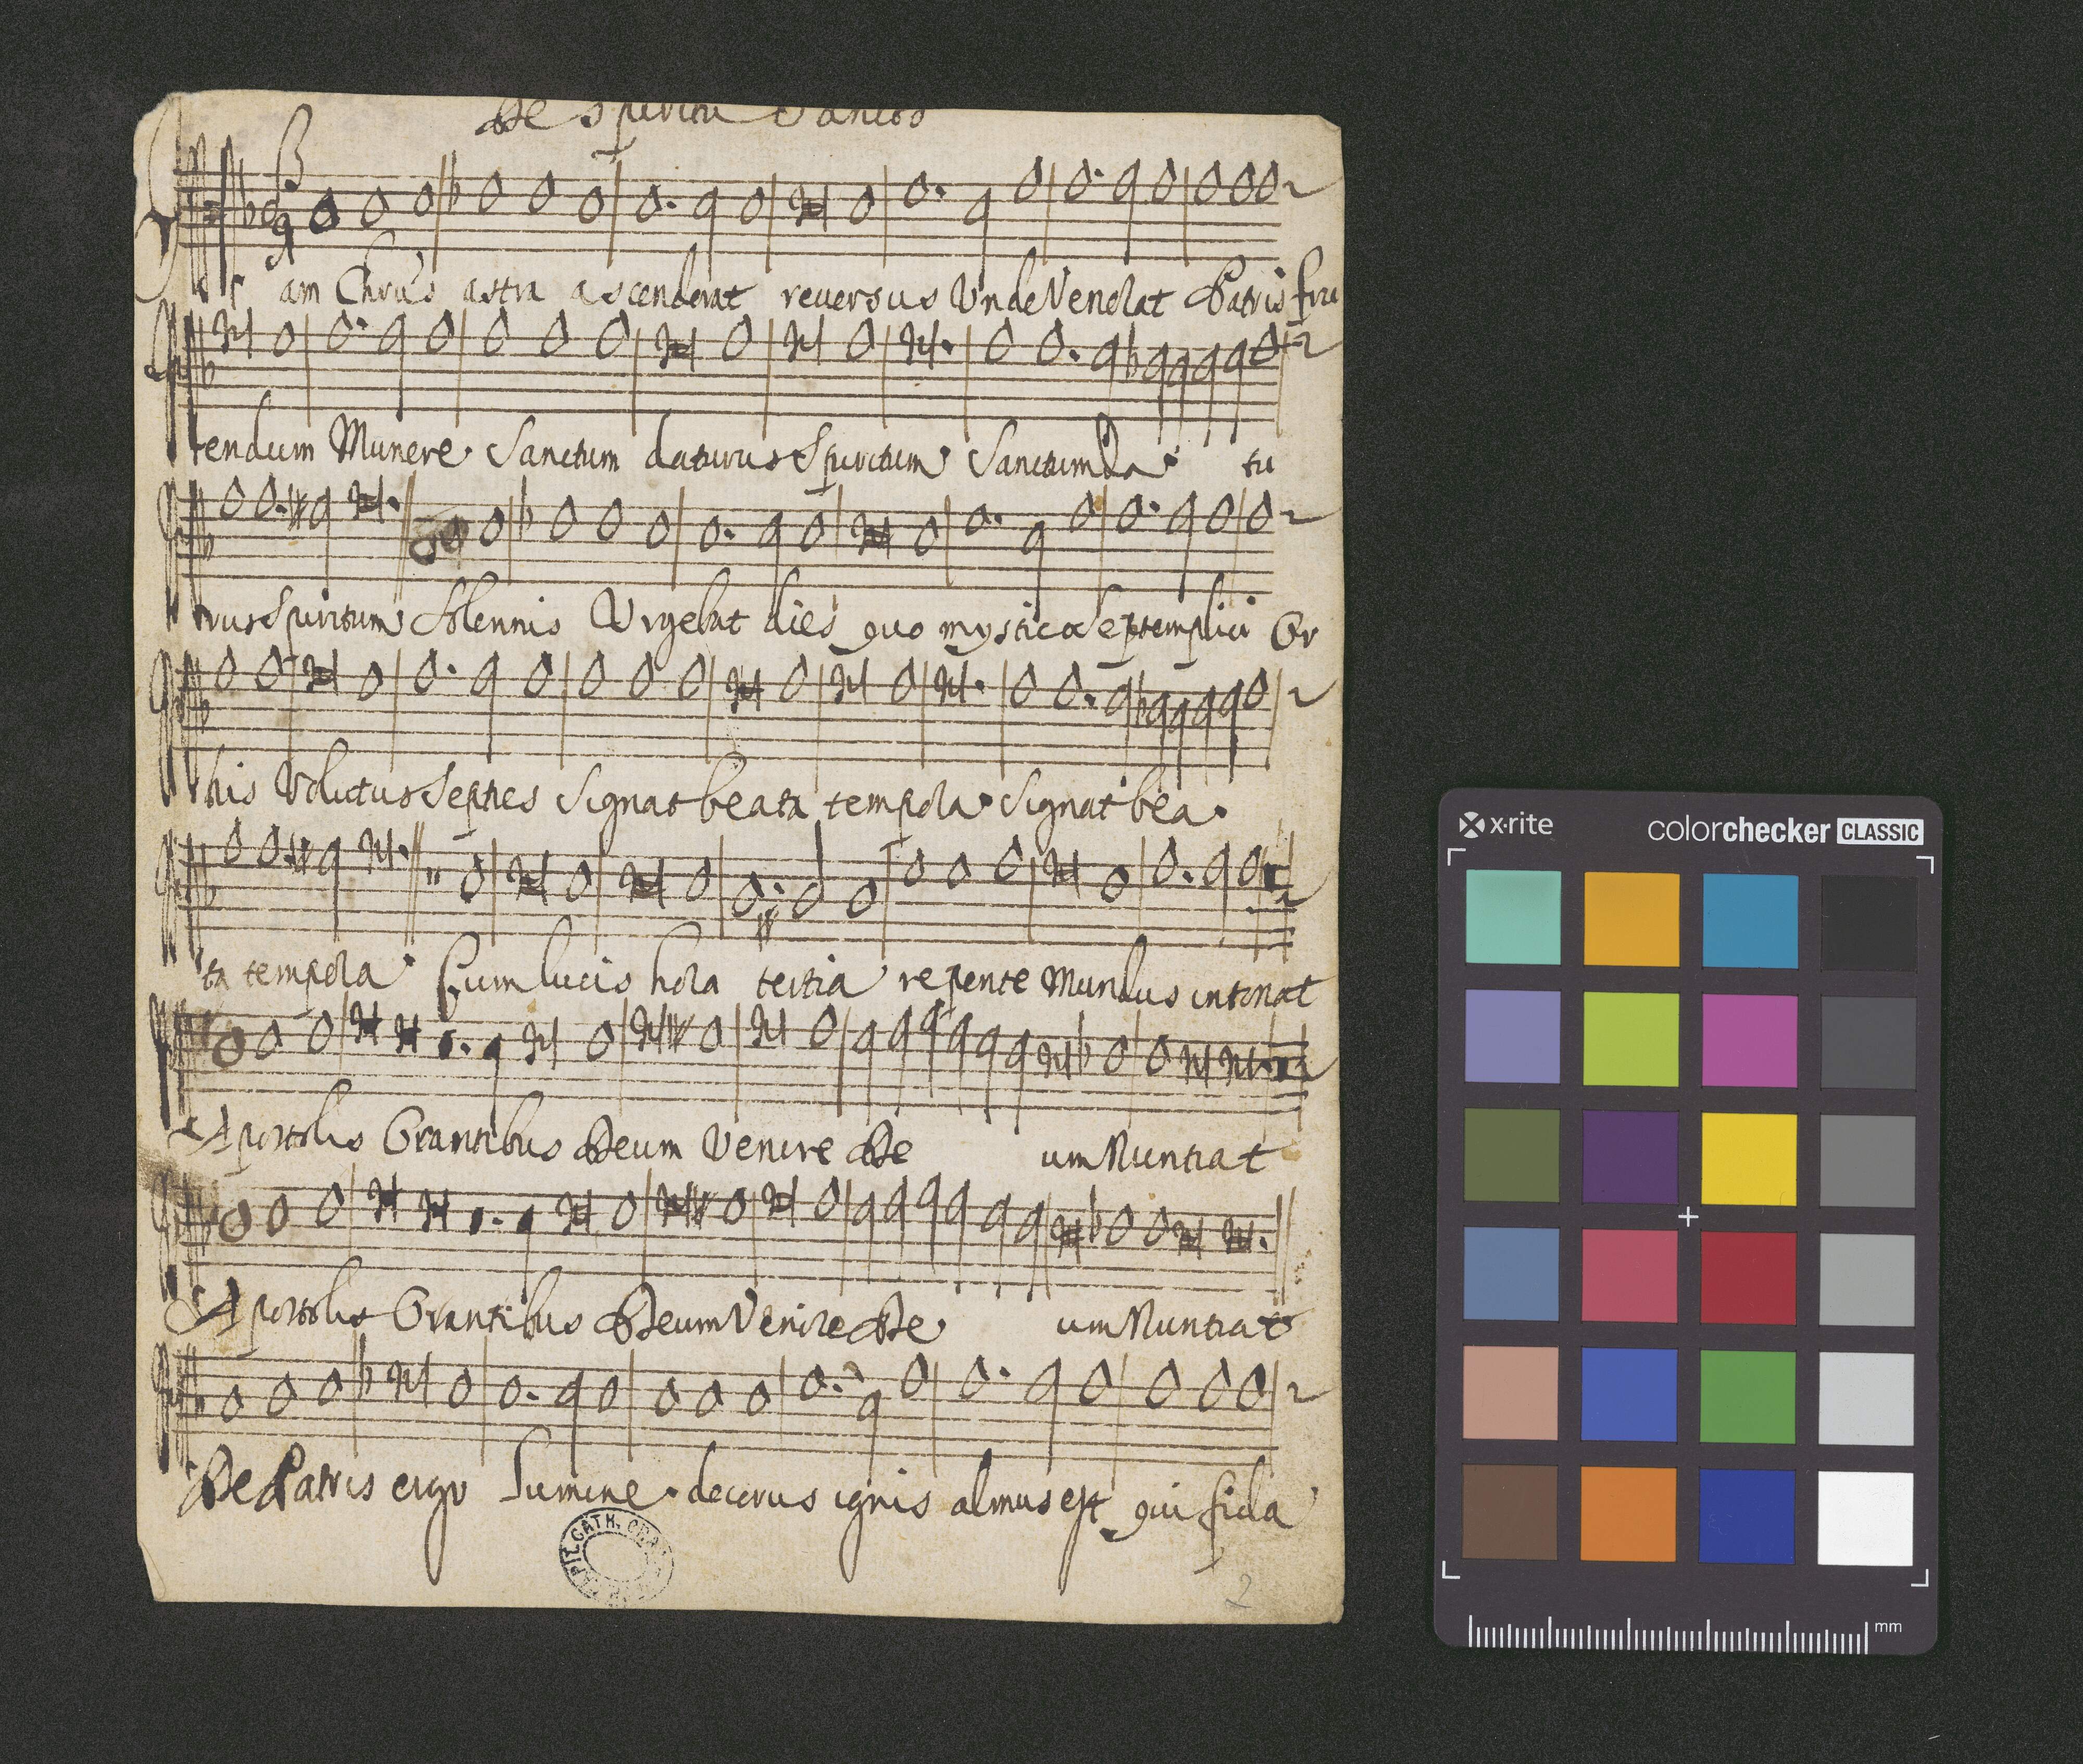 De Spiritu Sancto
Iam Chrũs astra ascenderat reuersus Vnde Venelat Patris fru
endum Munere. Sanctum daturus Spiritum Sanctum da. tu
rus Spiritum Solennis Vrgebat dies quo mystico Septemplici Or
bis Volutus Septies Signat beata tempola. Signat bea.
ta tempola Cum lucis hola tertia repente Mundus intonat
Apostolis Orantibus Deum Venire De um Nuntiat
Apostolis Orantibus Deum Venire De um Nuntiat
De Patris ergo lumine. decorus ignis almus est qui fida
2
x·rite
colorchecker CLASSIC
mm